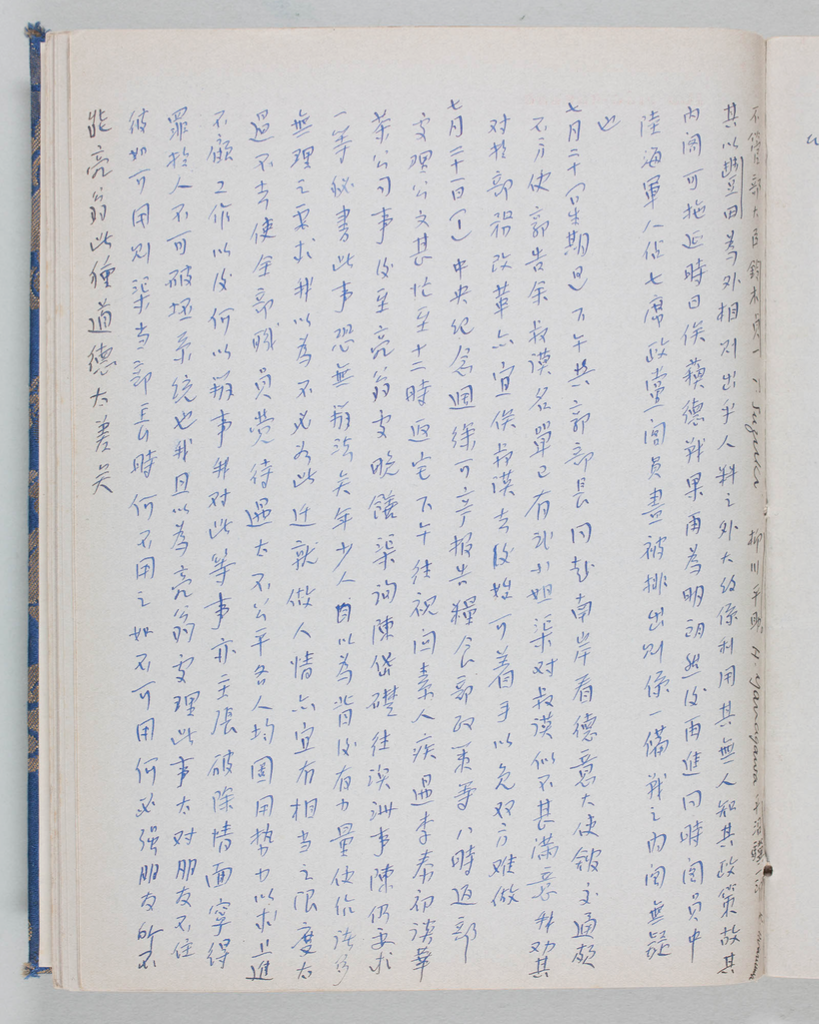 不管部大臣鈴木貞一 T. Suzuki 柳川平助 H. Yanagawa
其以此五田為外相則出乎人料之外大約係利用其無人知其政策故其
內閣可拖延時日俟蘇德戰果再為明朗然後再進同時閣員中
陸海軍人佔七席政黨閣員盡被排出則係一備戰之內閣無疑
也
七月二十(星期日)下午與郭部長同赴南岸看德意大使館交通頗
不方便郭告余叔謨名單已有小姐渠對叔謨似不甚滿意我勸其
對於部務改革亦宜俟叔謨去後始可着手以免双方难做
七月二十一日(一)中央紀念週徐可亭报告糧食部政策等八時返部
處理公文甚忙至十二時返宅下午往視閻素人疾遇李泰初談華
茶公司事後至亮翁處晚饍渠詢陳岱礎往澳洲事陳仍要求
一等秘書此事恐無辦法矣年少人自以為背後有力量使作許多
無理之要求我以為不必為此迁就做人情亦宜有相当之限度太
過不去使全部職員覺待遇太不公平各人均圖用势力以求上進
不顧工作以後何以辦事我对此等事亦主張破除情面寧得
罪於人不可破坏系統也我且以為亮翁處理此事太对朋友不住
彼如可用則渠当部長時何不用之如不可用何必强朋友所不
能亮翁此種道德太差矣